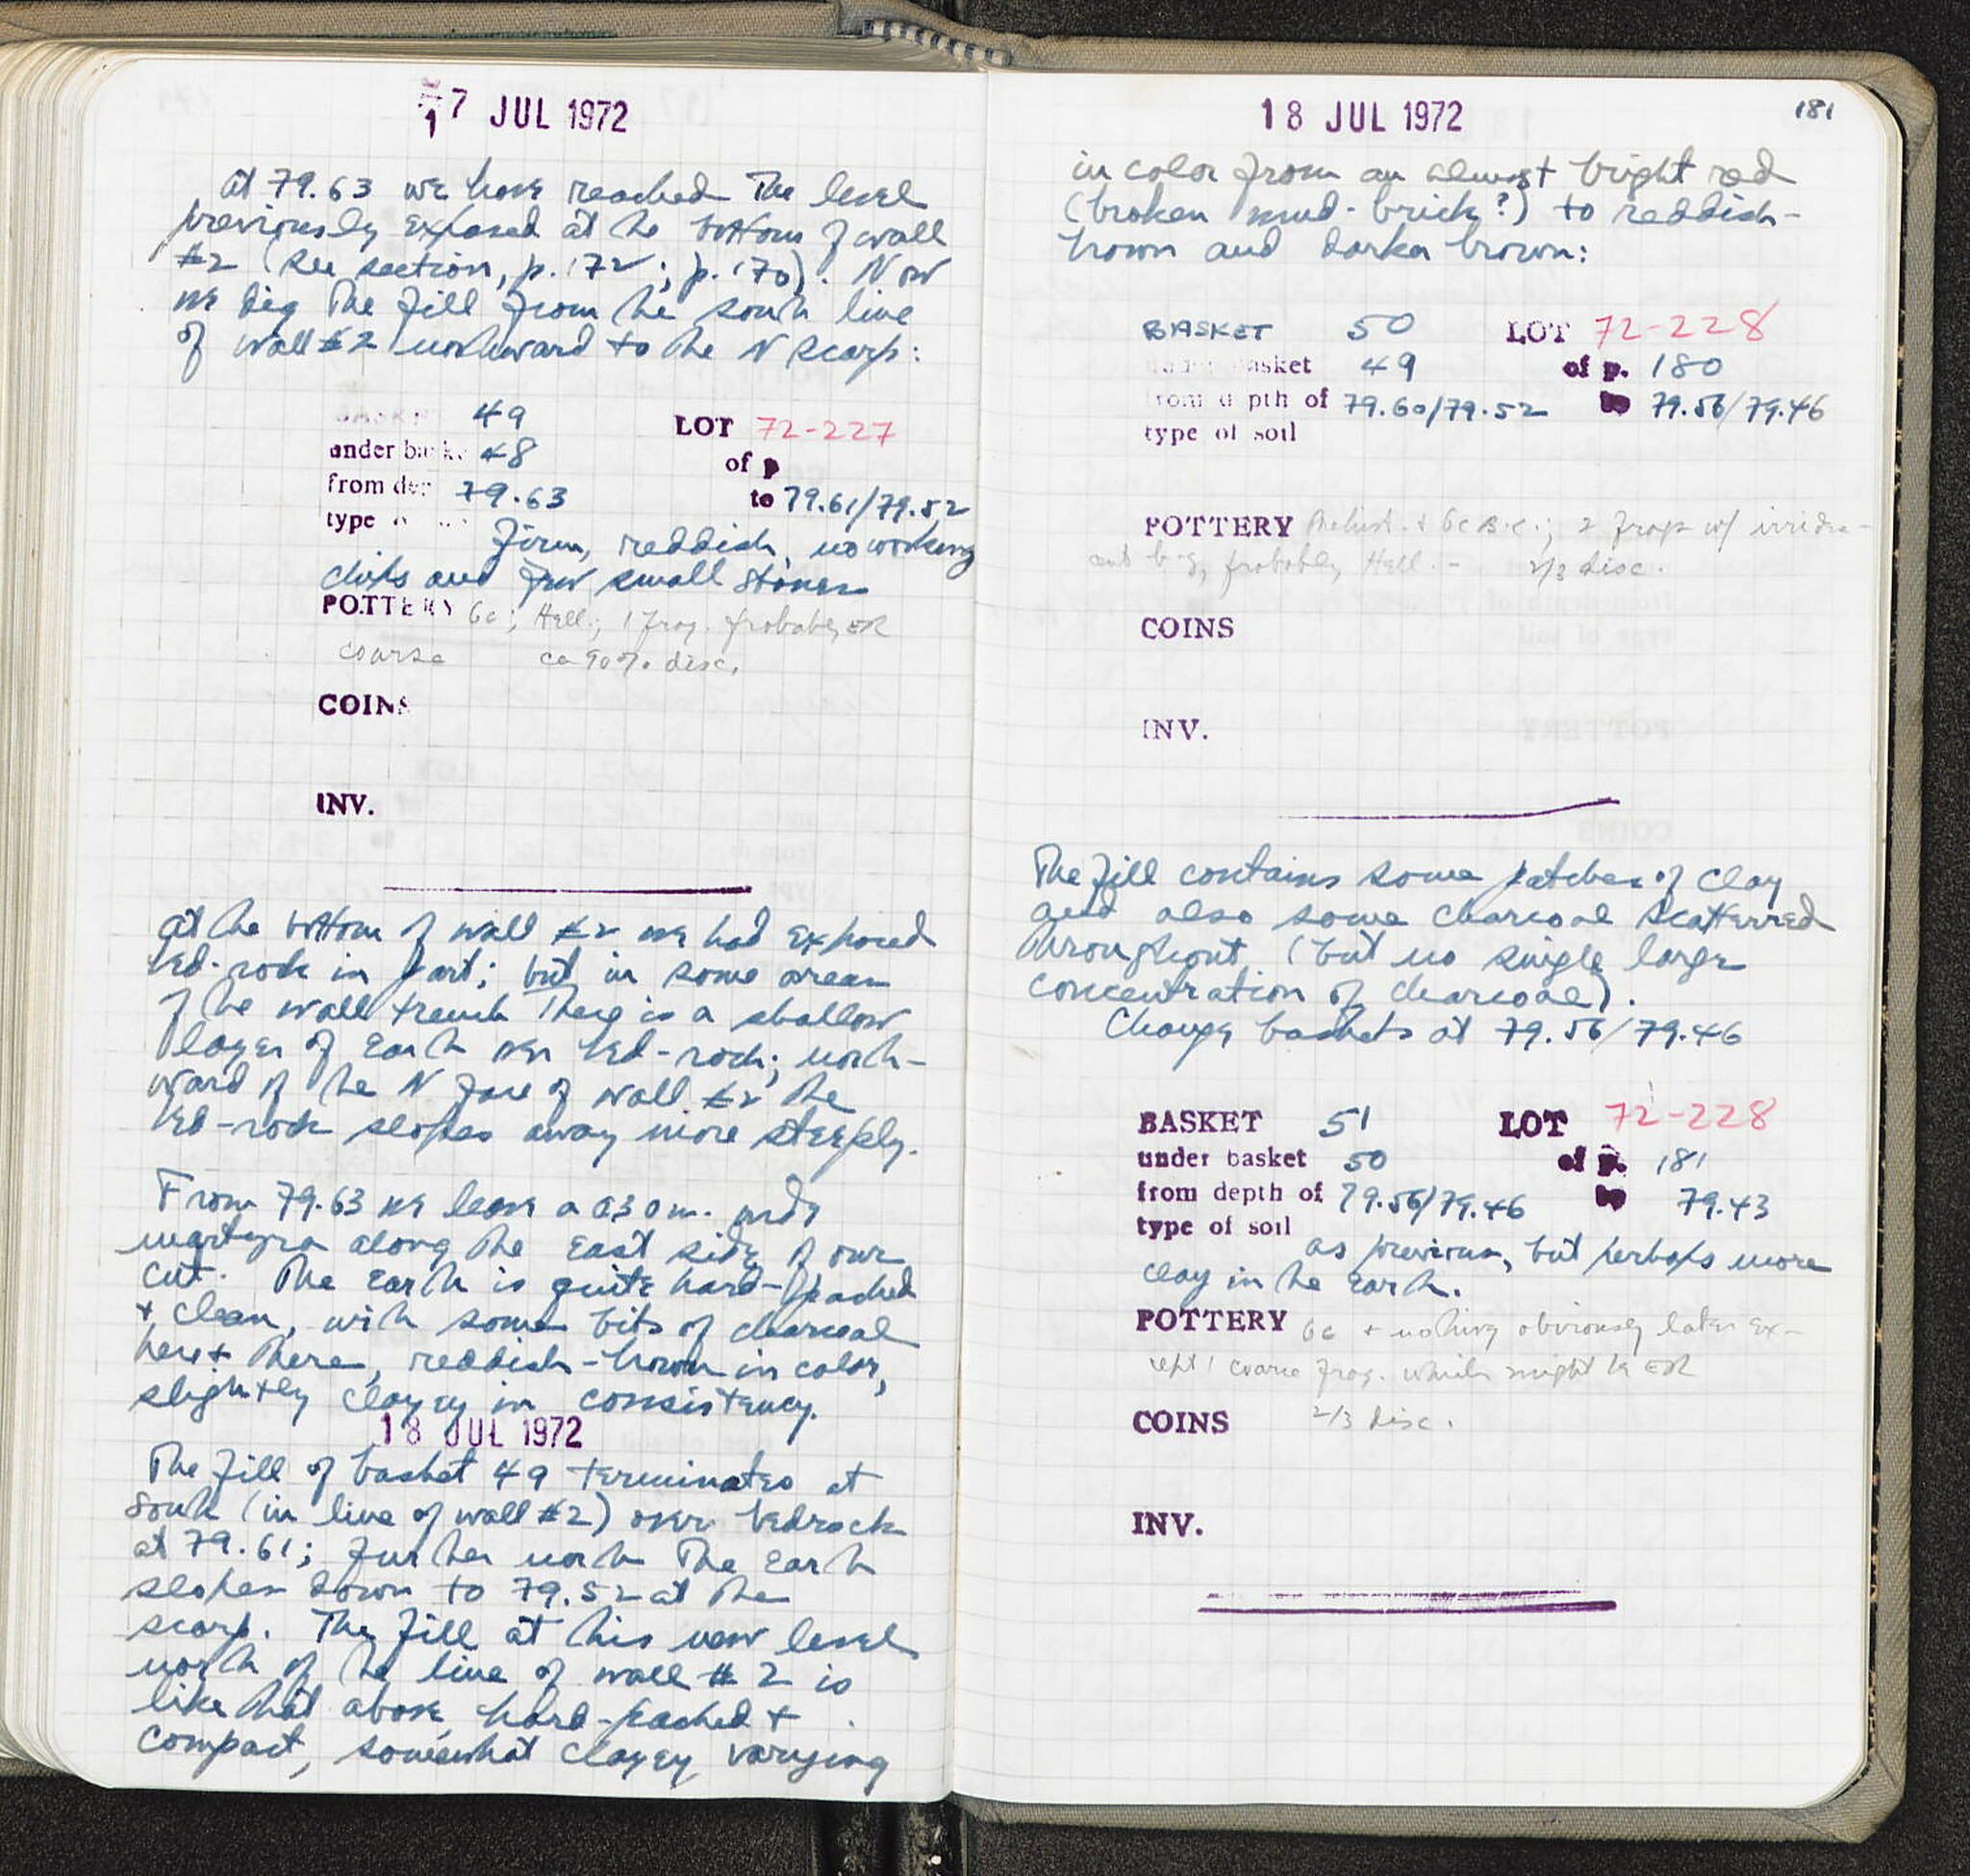 17 JUL 1972
At 79.63 we have reached the level
previously exposed at the bottom of wall
#2 (see section, p. 172; p. 170). Now
we dig the fill from the south line
of wall #2 northward to the N scarp:
BASKET 49 LOT 72-227
under basket 48 of p
from dep 79.63 to 79.61/79.52
type firm, reddish, no working
chips and few small stones
POTTERY 6c; Hell.; 1 frag. probably ER
coarse ca 90% disc.
COINS
INV.
At the bottom of wall #2 we had exposed
bed-rock in part; but in some areas
of the wall trench there is a shallow
layer of earth over bed-rock; north-
ward of the N face of wall #2 the
bed-rock slopes away more steeply.
From 79.63 we leave a 0.30 m. wide
martyra along the East side of our
cut. The earth is quite hard-packed
+ clean, with some bits of charcoal
here + there, reddish-brown in color,
slightly clayey in consistency.
18 JUL 1972
The fill of basket 49 terminates at
South (in line of wall #2) over bedrock
at 79.61; further north the earth
slopes down to 79.52 at the
scarp. The fill at this new level
north of the line of wall #2 is
like that above, hard-packed +
compact, somewhat clayey varying
18 JUL 1972
181
in color from an almost bright red
(broken mud-brick?) to reddish-
brown and darker brown:
BASKET 50 LOT 72-228
under basket 49 of p. 180
from depth of 79.60/79.52 to 79.56/79.46
type of soil
POTTERY Prehist. + 6c B.C.; 2 frags w/ irides-
cent b-g, probably Hell. - 2/3 disc.
COINS
INV.
The fill contains some patches of clay
and also some charcoal scatterred
throughout (but no single large
concentration of charcoal).
Change baskets at 79.56/79.46
BASKET 51 LOT 72-228
under basket 50 of p. 181
from depth of 79.56/79.46 to 79.43
type of soil as previous, but perhaps more
clay in the earth.
POTTERY 6c + nothing obviously later ex-
cept 1 coarse frag. which might be ER
COINS 2/3 disc.
INV.